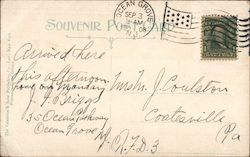 SOUVENIR POST CARD
OCEAN GROVE
SEP 3
Arrived here
this afternoon.
home on Monday
J. F. Briggs
35 Ocean Pathway
Ocean Grove
N.J.
Mrs. J. Coulston
Coatesville
R.F.D. 3
Pa